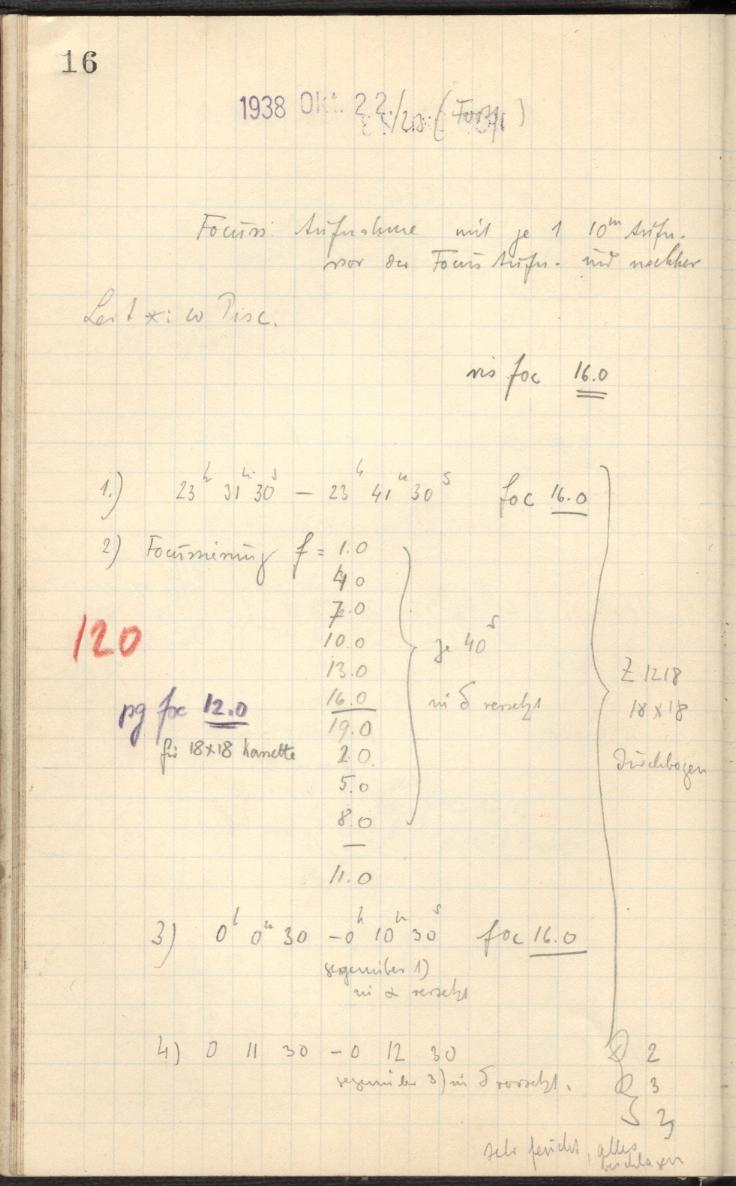 16
1938 Okt. 22./23. (Forts.)
Focuss. Aufnahme mit je 1 10ᵐ Aufn.
vor der Focus Aufn. und nachher
Leit *: ω Pisc.
vis foc 16.0
1.) 23ʰ 31ᵐ 30ˢ – 23ʰ 41ᵐ 30ˢ foc 16.0
2) Focussierung f = 1.0
4.0
7.0
10.0
13.0
16.0
19.0
2.0
5.0
8.0
—
11.0
je 40ˢ
in δ versetzt
120
pg foc 12.0
für 18×18 Kassette
Z 1218
18×18
Durchbogen
3) 0ʰ 0ᵐ 30 – 0ʰ 10ᵐ 30ˢ foc 16.0
gegenüber 1)
in α versetzt
4) 0 11 30 – 0 12 30
gegenüber 3) in δ versetzt.
2
3
2
sehr feucht, alles
beschlagen